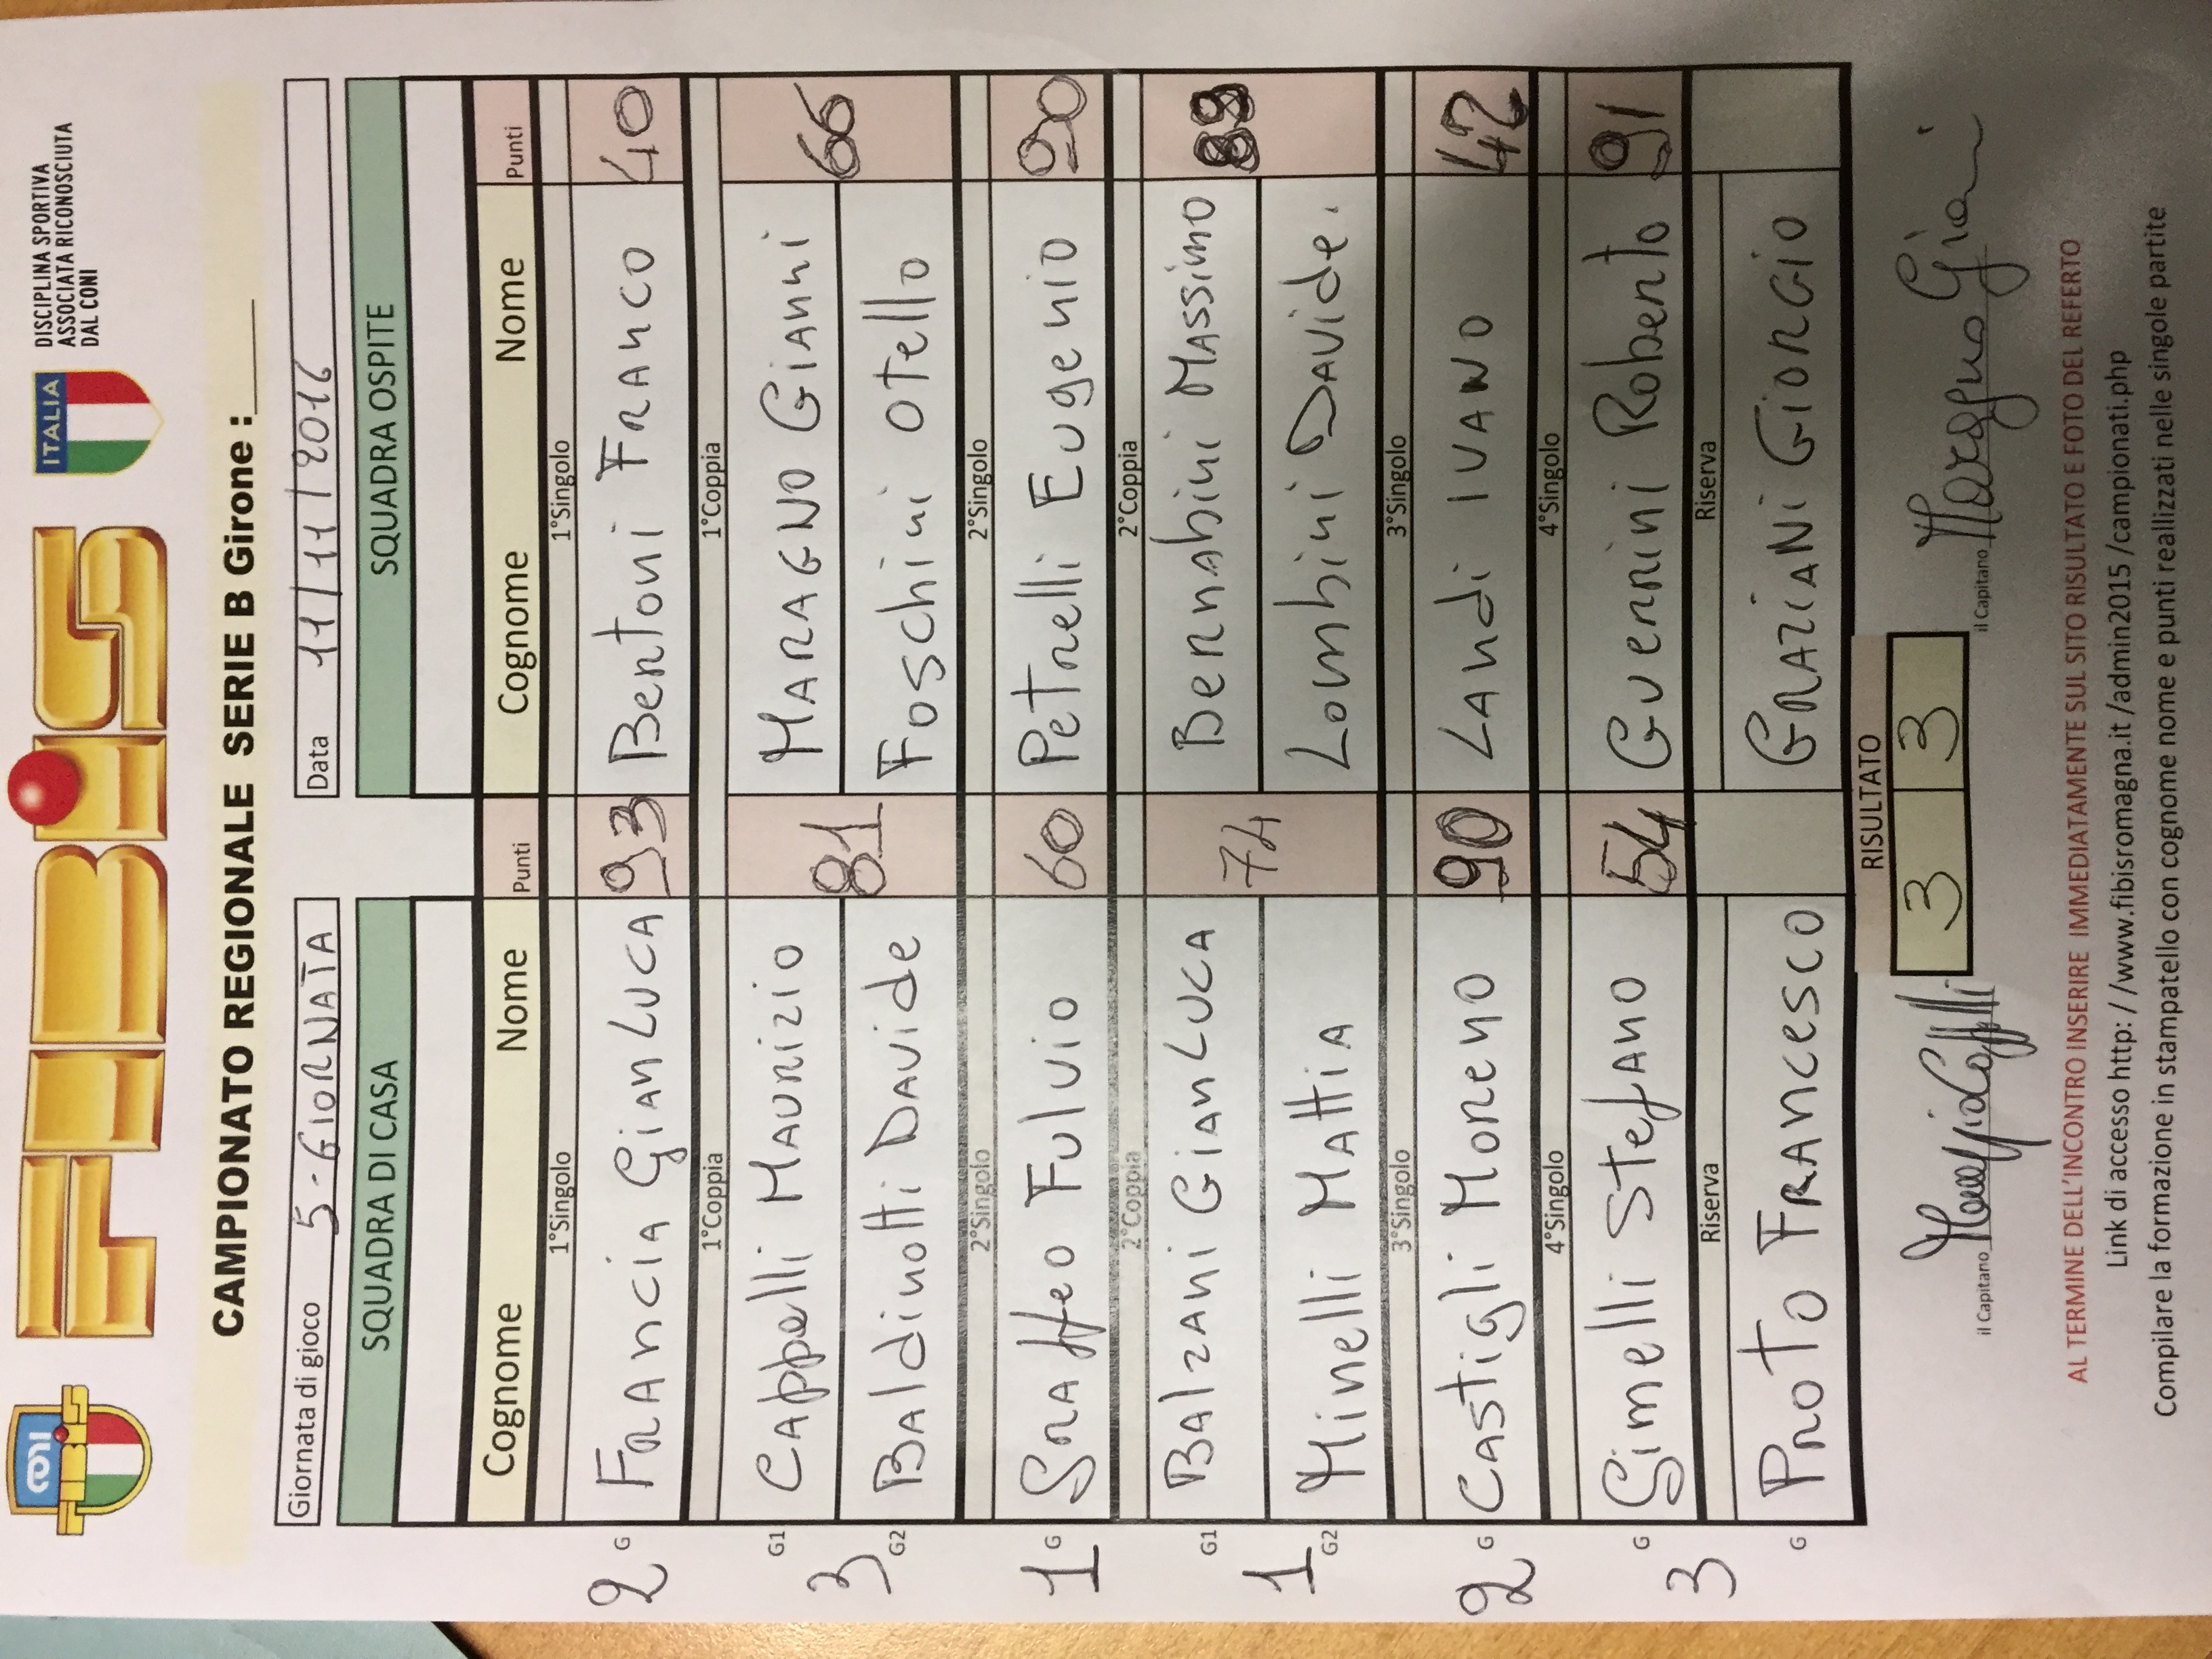 FIBiS
ITALIA
DISCIPLINA SPORTIVA
ASSOCIATA RICONOSCIUTA
DAL CONI
CAMPIONATO REGIONALE SERIE B Girone :____
Giornata di gioco 5-GIORNATA Data 11/11/2016
SQUADRA DI CASA SQUADRA OSPITE
Cognome Nome Punti Cognome Nome Punti
1°Singolo 1°Singolo
2 G FRANCIA GIANLUCA 93 BERTONI FRANCO 40
1°Coppia 1°Coppia
G1 CAPPELLI MAURIZIO MARAGNO GIANNI
3 81 66
G2 BALDINOTTI DAVIDE FOSCHINI OTELLO
2°Singolo 2°Singolo
1 G SRAFFEO FULVIO 60 PETRELLI EUGENIO 90
2°Coppia 2°Coppia
G1 BALZANI GIANLUCA BERNABINI MASSIMO
1 74 89
G2 MINELLI MATTIA LOMBINI DAVIDE.
3°Singolo 3°Singolo
2 G CASTIGLI MORENO 90 LANDI IVANO 42
4°Singolo 4°Singolo
3 G GIMELLI STEFANO 54 GUERRINI ROBERTO 91
Riserva Riserva
G PROTO FRANCESCO GRAZIANI GIORGIO
RISULTATO
3 3
il Capitano il Capitano Maragno Gianni
AL TERMINE DELL'INCONTRO INSERIRE IMMEDIATAMENTE SUL SITO RISULTATO E FOTO DEL REFERTO
Link di accesso http: / /www.fibisromagna.it /admin2015 /campionati.php
Compilare la formazione in stampatello con cognome nome e punti reallizzati nelle singole partite